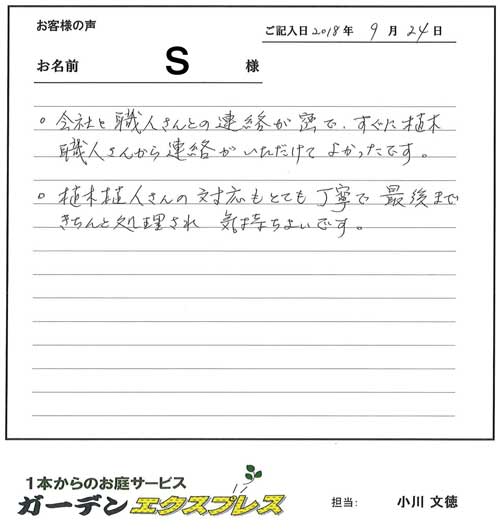 お客様の声
ご記入日2018年 9月24日
お名前 S 様
。会社と職人さんとの連絡が密で、すぐに植木
職人さんから連絡がいただけてよかったです。
。植木植人さんの対応もとても丁寧で最後まで
きちんと処理され 気持ちよいです。
1本からのお庭サービス
ガーデンエクスプレス
担当: 小川 文徳